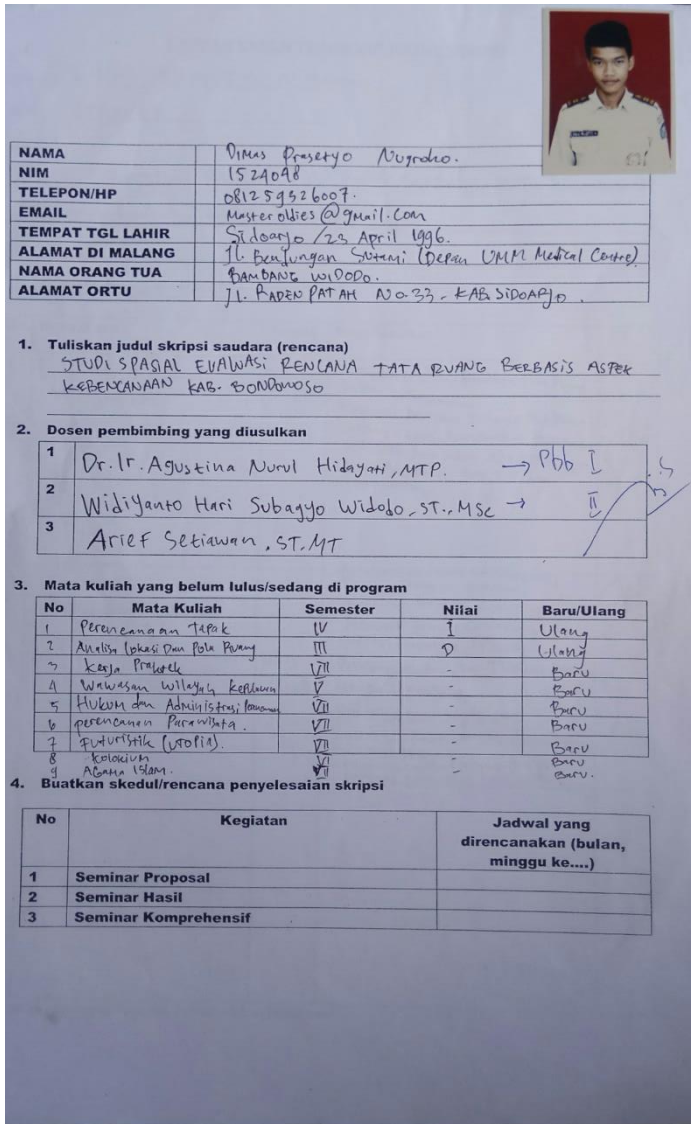 NAMA Dimas Prasetyo Nugroho.
NIM 1524048
TELEPON/HP 081259326007.
EMAIL Masteroldies@gmail.com
TEMPAT TGL LAHIR Sidoarjo /23 April 1996.
ALAMAT DI MALANG Jl. Bendungan Sutami (Depan UMM Medical Centre)
NAMA ORANG TUA BAMBANG WIDODO.
ALAMAT ORTU Jl. RADEN PATAH No.33 - KAB. SIDOARJO.
1. Tuliskan judul skripsi saudara (rencana)
STUDI SPASIAL EVALUASI RENCANA TATA RUANG BERBASIS ASPEK
KEBENCANAAN KAB. BONDOWOSO
2. Dosen pembimbing yang diusulkan
1 Dr. Ir. Agustina Nurul Hidayati, MTP. → Pbb I
2 Widiyanto Hari Subagyo Widodo, ST., MSc → II
3 Arief Setiawan, ST. MT
3. Mata kuliah yang belum lulus/sedang di program
No Mata Kuliah Semester Nilai Baru/Ulang
1 Perencanaan tapak IV I Ulang
2 Analisa Lokasi Dan Pola Ruang III D Ulang
3 Kerja Praktek VII - Baru
4 Wawasan wilayah V - Baru
5 Hukum dan Administrasi VII - Baru
6 perencanan Parawisata. VII - Baru
7 Futuristik (utopia). VII - Baru
8 Kolokium VI - Baru
9 Agama Islam. - Baru.
4. Buatkan skedul/rencana penyelesaian skripsi
No Kegiatan Jadwal yang
direncanakan (bulan,
minggu ke....)
1 Seminar Proposal
2 Seminar Hasil
3 Seminar Komprehensif